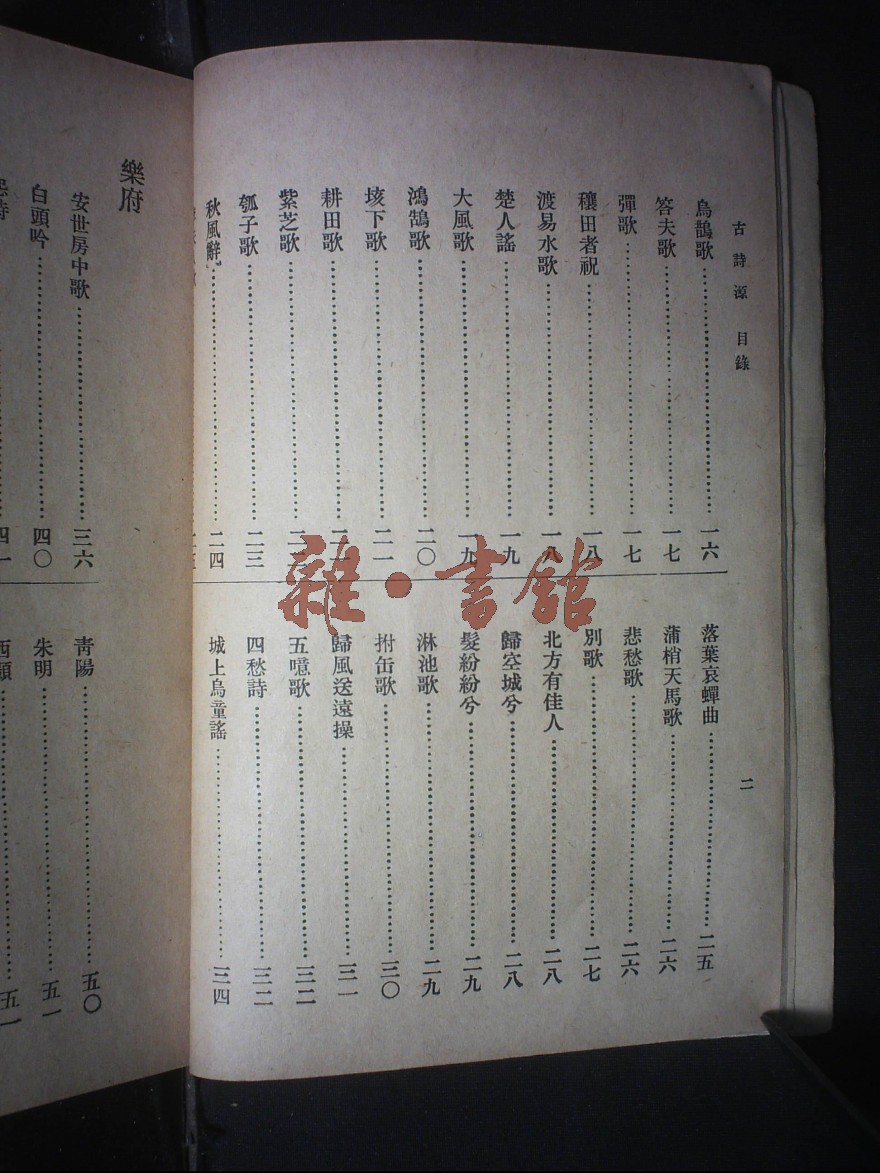 古詩源 目錄
二
烏鵲歌 一六
答夫歌 一七
彈歌 一七
穰田者祝 一八
渡易水歌 一八
楚人謠 一九
大風歌 一九
鴻鵠歌 二〇
垓下歌 二一
耕田歌
紫芝歌
瓠子歌 二三
秋風辭 二四
落葉哀蟬曲 二五
蒲梢天馬歌 二六
悲愁歌 二六
別歌 二七
北方有佳人 二八
歸空城兮 二八
髮紛紛兮 二九
淋池歌 二九
拊缶歌 三〇
歸風送遠操 三一
五噫歌 三二
四愁詩 三二
城上烏童謠 三四
樂府
安世房中歌 三六
白頭吟 四〇
四一
青陽 五〇
朱明 五一
西顥 五一
雜·書館